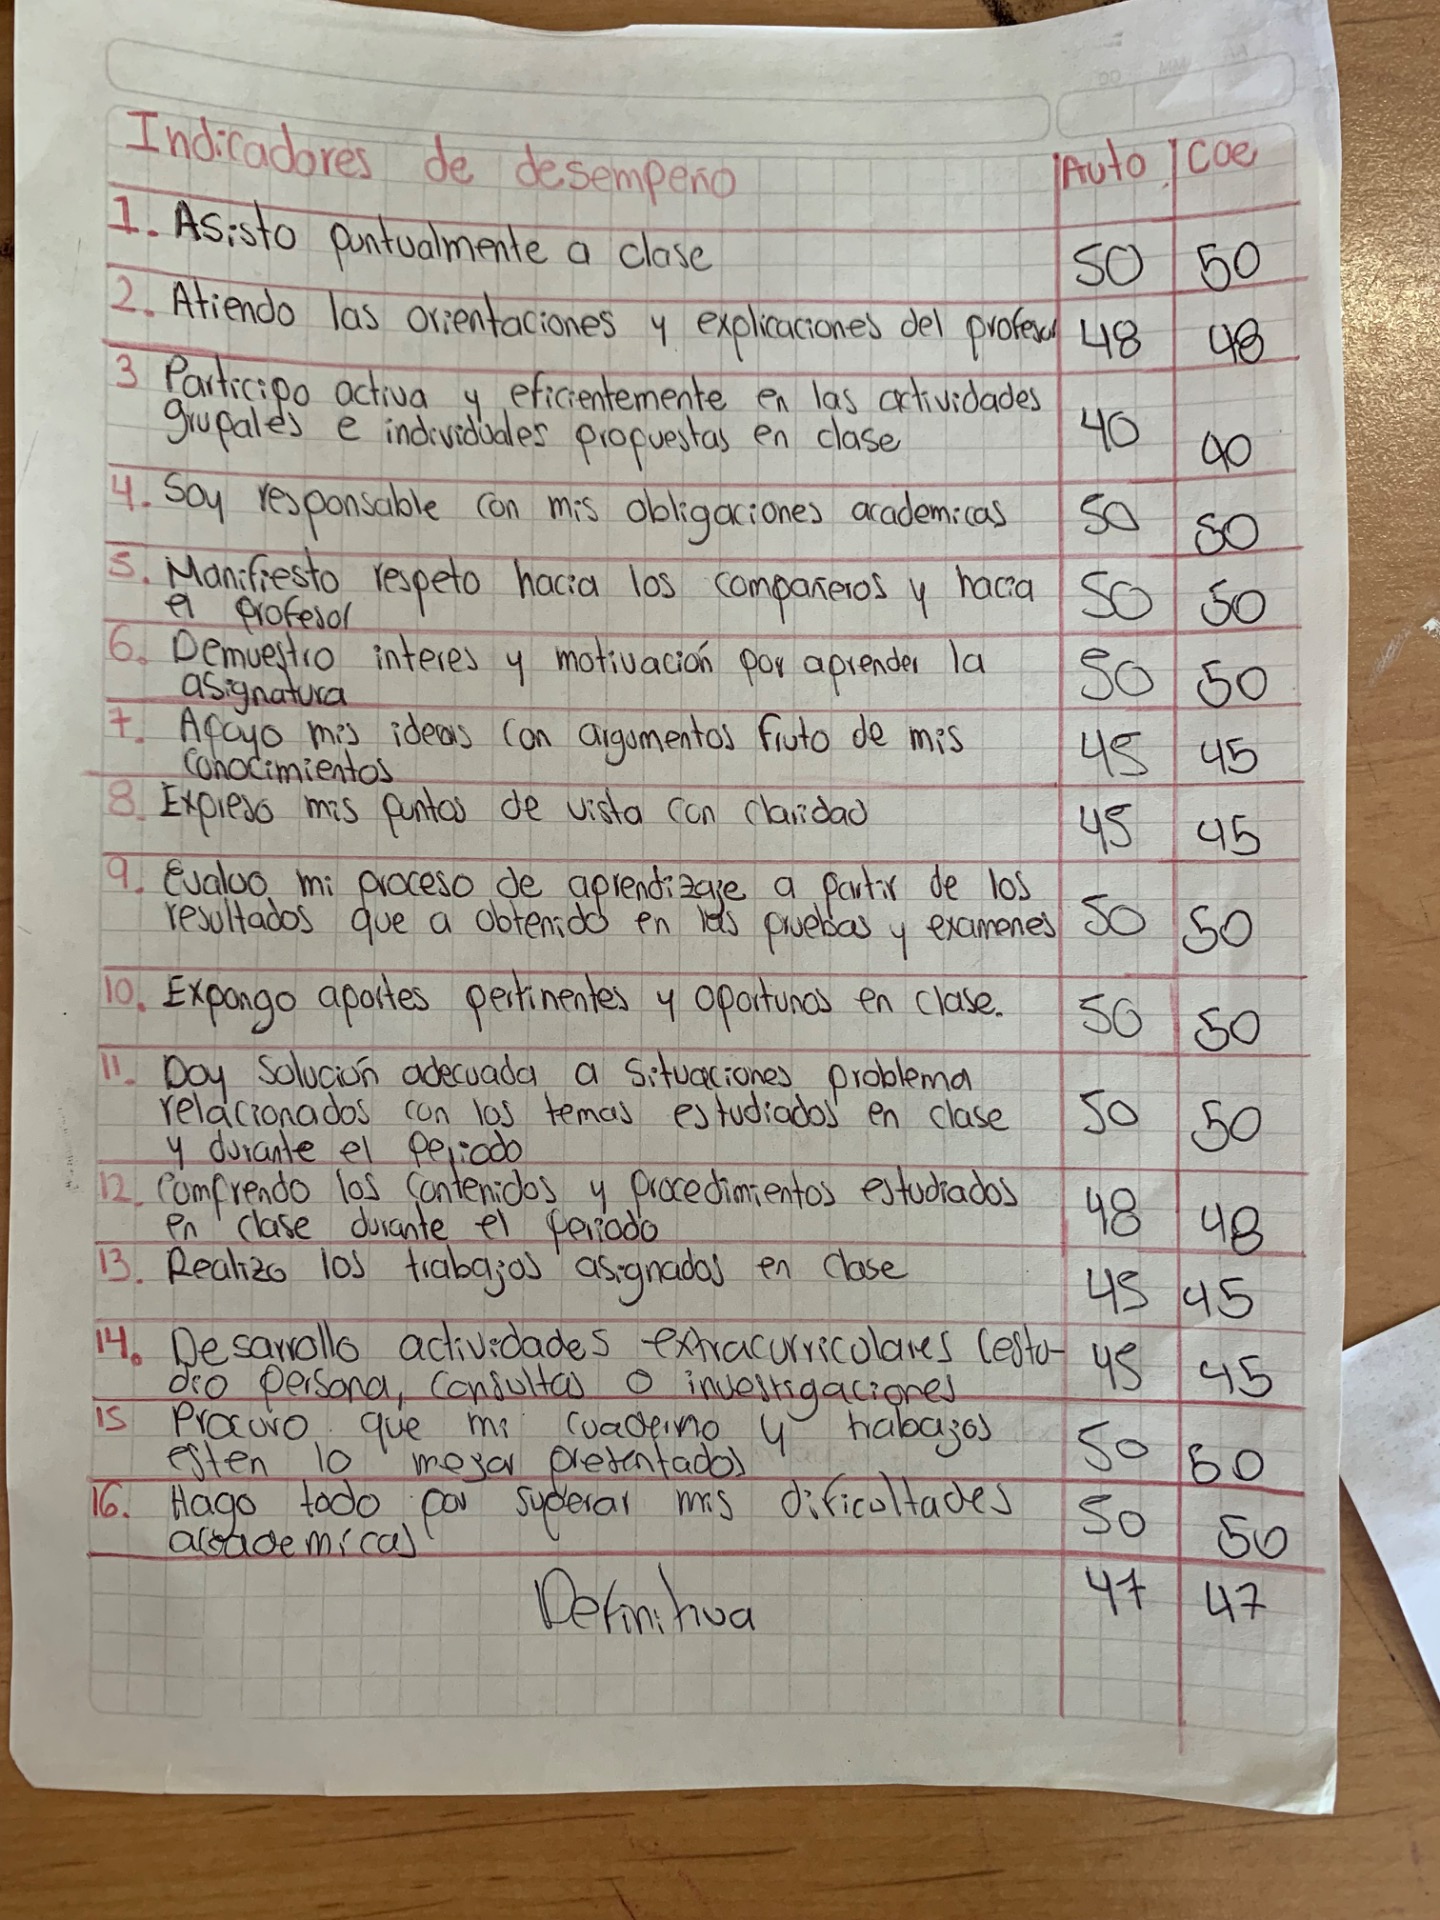 Indicadores de desempeño Auto. Coe
1. Asisto puntualmente a clase 50 50
2. Atiendo las orientaciones y explicaciones del profesor 48 48
3 Participo activa y eficientemente en las actividades
grupales e individuales propuestas en clase 40 40
4. Soy responsable con mis obligaciones academicas 50 50
5. Manifiesto respeto hacia los compañeros y hacia 50 50
el profesor
6. Demuestro interes y motivación por aprender la 50 50
asignatura
7. Apoyo mis ideas con argumentos fruto de mis 45 45
conocimientos
8. Expreso mis puntos de vista con claridad 45 45
9. Evaluo mi proceso de aprendizaje a partir de los
resultados que a obtenido en las pruebas y examenes 50 50
10. Expongo aportes pertinentes y oportunos en clase. 50 50
11. Doy Solución adecuada a situaciones problema
relacionados con los temas estudiados en clase 50 50
y durante el periodo
12. Comprendo los contenidos y procedimientos estudiados 48 48
en clase durante el periodo
13. Realizo los trabajos asignados en clase 45 45
14. Desarrollo actividades extracurriculares (estu- 45 45
dio persona, consultas o investigaciones
15 Procuro que mi cuaderno y trabajos 50 50
esten lo mejor presentados
16. Hago todo por superar mis dificultades 50 50
academicas
Definitiva 47 47